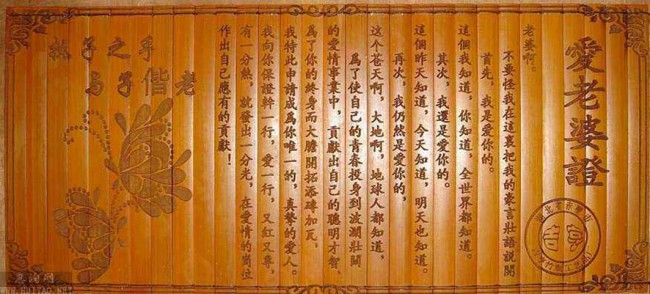 愛老婆證
老婆啊。
不要怪我在這裏把我的豪言壯語說開
首先，我是愛你的。
這個我知道，你知道，全世界都知道。
其次，我還是愛你的。
這個昨天知道，今天知道，明天也知道。
再次，我仍然是愛你的，
這个苍天啊，大地啊，地球人都知道，
為了使自己的青春投身到波瀾壯闊
的愛情事業中，貢獻出自己的聰明才智，
為了你的終身而大膽開拓添磚加瓦，
我特此申請成為你唯一的，真摯的愛人。
我向你保證幹一行，愛一行，又紅又專，
有一分熱，就發出一分光，在愛情的崗位
作出自己應有的貢獻！
執子之手
与子偕老